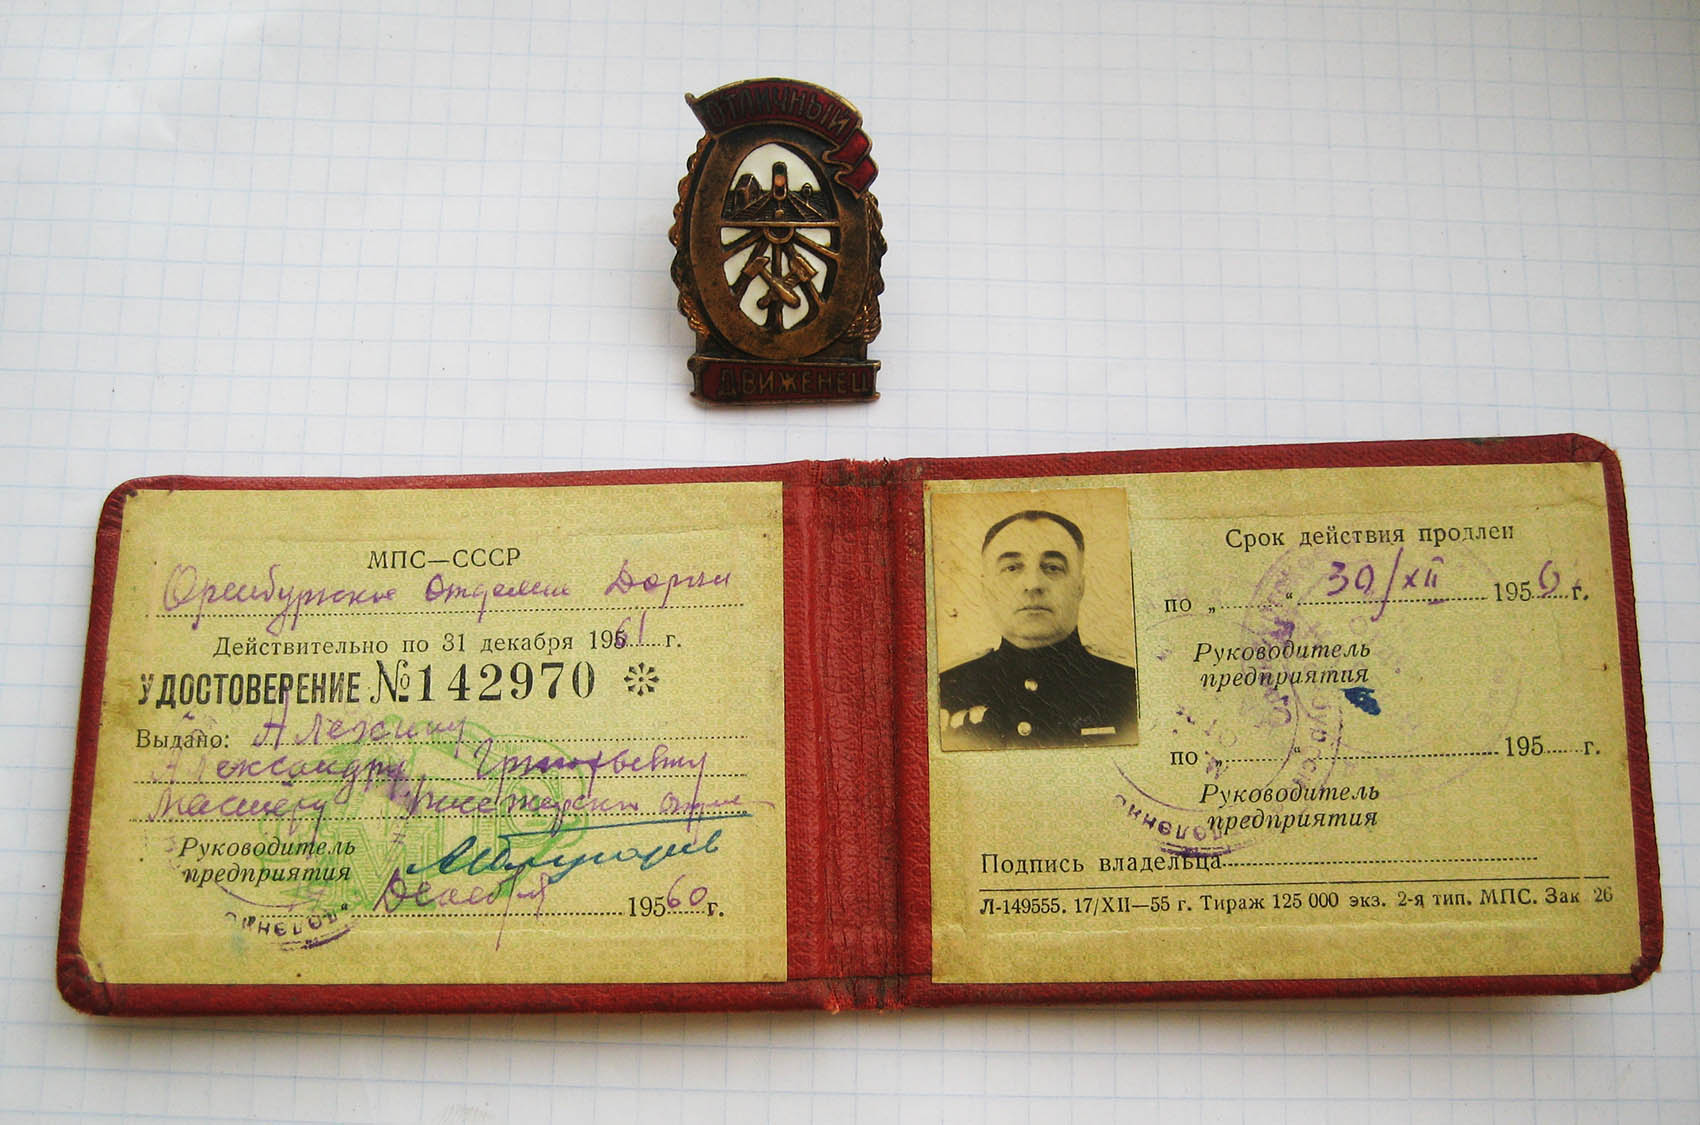 ОТЛИЧНЫЙ
ДВИЖЕНЕЦ
МПС—СССР
Оренбургское Отделение Дороги
Действительно по 31 декабря 1961 г.
УДОСТОВЕРЕНИЕ №142970
Выдано: Алехину
Александру Григорьевичу
Мастеру
Руководитель
предприятия
Декабря 195 60 г.
Срок действия продлен
по „ “ 30/XII 195 г.
Руководитель
предприятия
по „ “ 195 г.
Руководитель
предприятия
Подпись владельца
Л-149555. 17/XII—55 г. Тираж 125 000 экз. 2-я тип. МПС. Зак 26